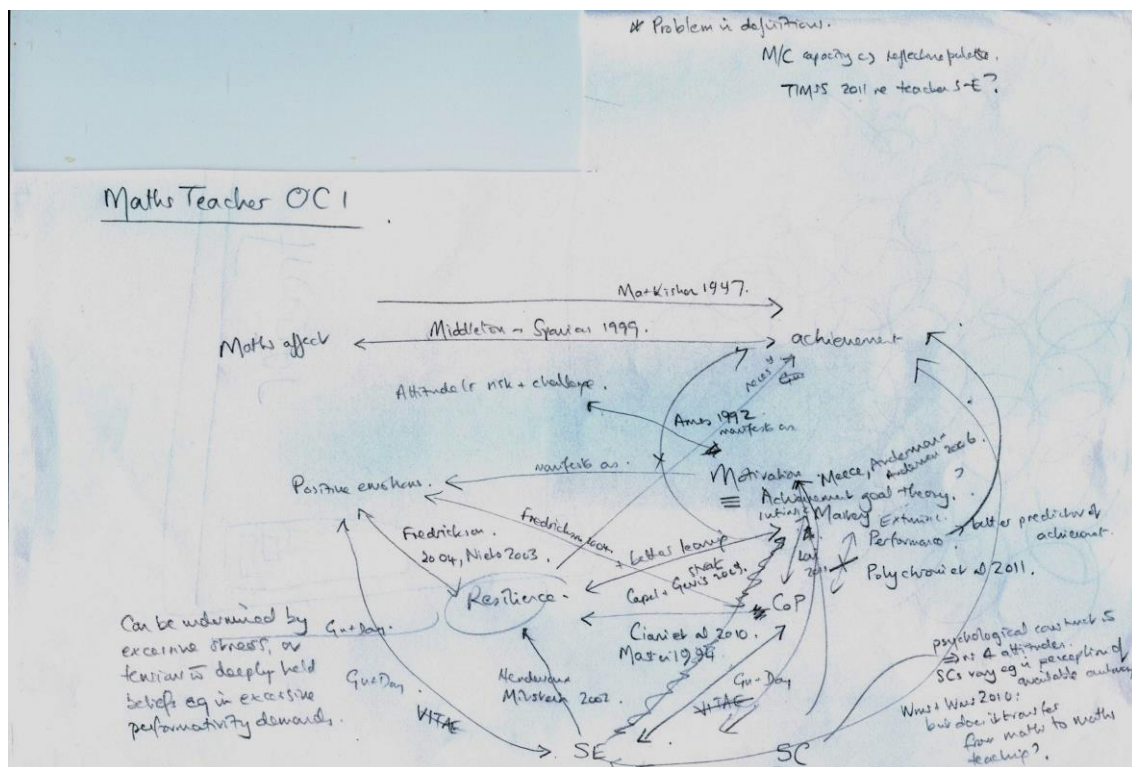 * Problem in definitions.
M/C capacity cf reflective palette.
TIMSS 2011 re teacher S-E?
Maths Teacher OC1
Markisha 1947.
Middleton + Spanias 1999.
Maths affect
achievement
Attitude risk + challenge.
necessary
Ames 1992
manifests as
manifests as.
Motivation
Meece, Anderman + Anderman 2006.
Positive emotions.
Achievement goal theory.
?
intrinsic
Mastery
Extrinsic
Performance.
better predictor of
achievement.
Fredrickson
2004, Nieto 2003
Fredrickson 2004
+ better learning
strat
2011
Polychroni et al 2011.
Resilience.
2009.
CoP
Ciani et al 2010.
1994
Can be undermined by
excessive stress, or
tension deeply held
beliefs eg in excessive
performativity demands.
Gu + Day.
Gu + Day
VITAE
Henderson +
Milstein 2002.
Gu + Day
VITAE
psychological constructs
attitudes.
SCs vary eg in perception of
available autonomy
Wms + Wms 2010.
but does it transfer
from maths to maths
teaching?
SE
SC